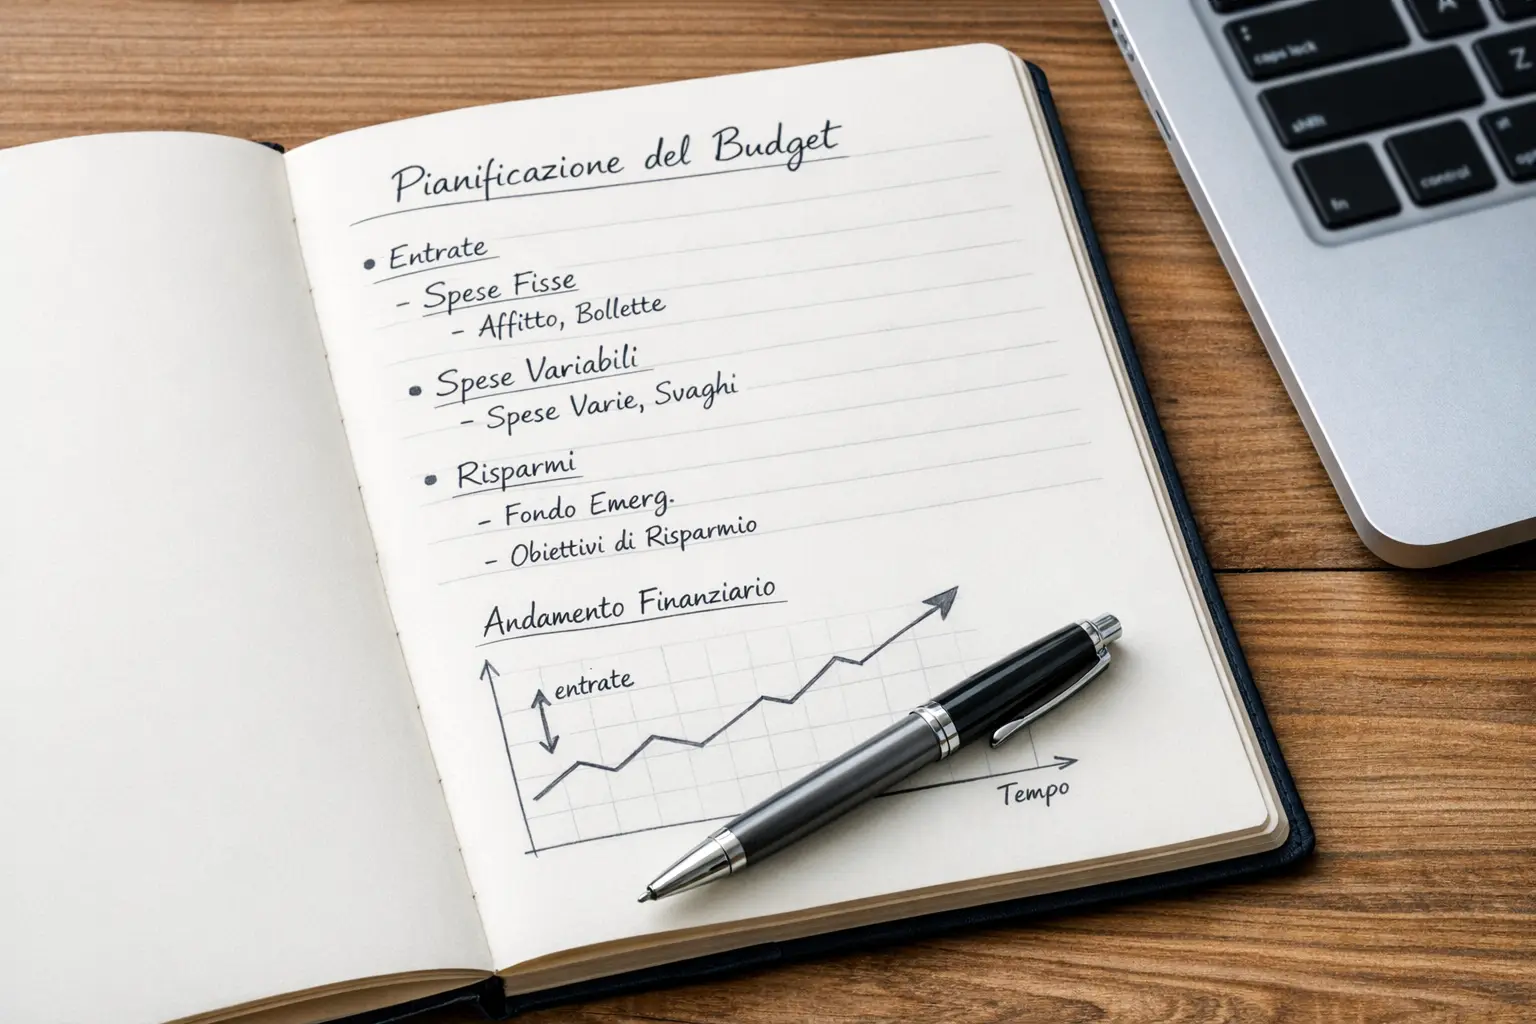 Pianificazione del Budget
• Entrate
- Spese Fisse
- Affitto, Bollette
• Spese Variabili
- Spese Varie, Svaghi
• Risparmi
- Fondo Emerg.
- Obiettivi di Risparmio
Andamento Finanziario
entrate
Tempo
caps lock
A
shift
Z
fn
control